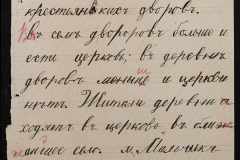 крестьянскихъ дворовъ.
Въ селѣ двороровъ больше и
есть церковь; въ деревнѣ
дворовъ меньше и церкви
нѣтъ. Жители деревни
ходятъ въ церковь въ ближ
айшее село. м. Малыхъ